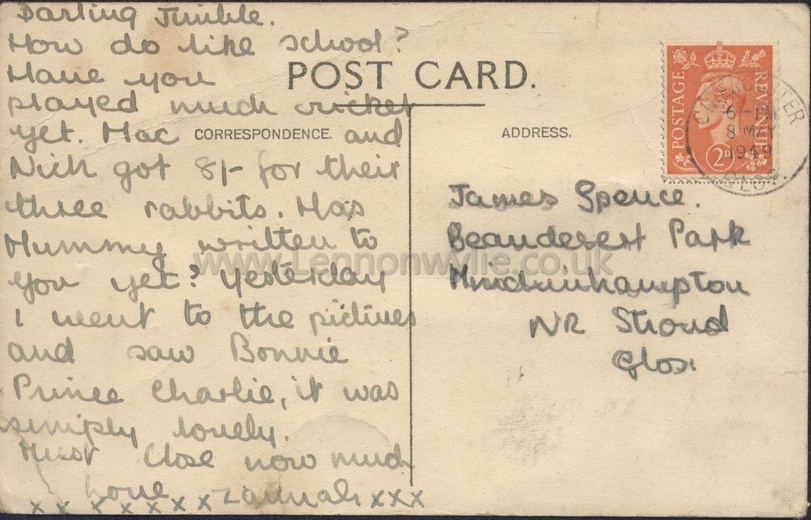 Darling Jimble.
How do like school?
Have you
played much cricket
yet. Mac and
Nick got 8/- for their
three rabbits. Has
Mummy written to
you yet? Yesterday
I went to the pictures
and saw Bonnie
Prince Charlie, it was
simply lovely.
Must close now much
love xxx
xx xxxxx
POST CARD.
CORRESPONDENCE.
ADDRESS.
James Spence.
Beaudesert Park
Minchinhampton
NR Stroud
Glos.
POSTAGE
REVENUE
2D
CIRENCESTER
6-PM
8 MAY
1949
GLOS.
www.Lennonwylie.co.uk